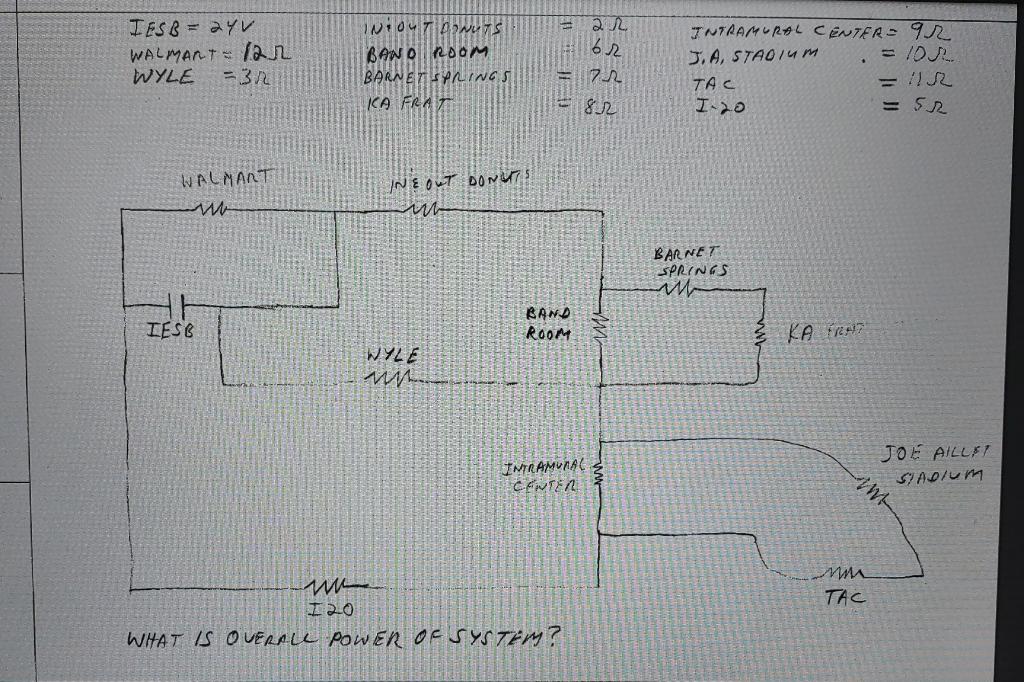 IESB = 24V
WALMART = 12Ω
WYLE = 3Ω
IN & OUT DONUTS = 2Ω
BAND ROOM = 6Ω
BARNET SPRINGS = 7Ω
KA FRAT = 8Ω
INTRAMURAL CENTER = 9Ω
J.A. STADIUM = 10Ω
TAC = 11Ω
I-20 = 5Ω
WALMART
IN & OUT DONUTS
BARNET
SPRINGS
IESB
BAND
ROOM
KA FRAT
WYLE
INTRAMURAL
CENTER
JOE AILLET
STADIUM
I20
TAC
WHAT IS OVERALL POWER OF SYSTEM?